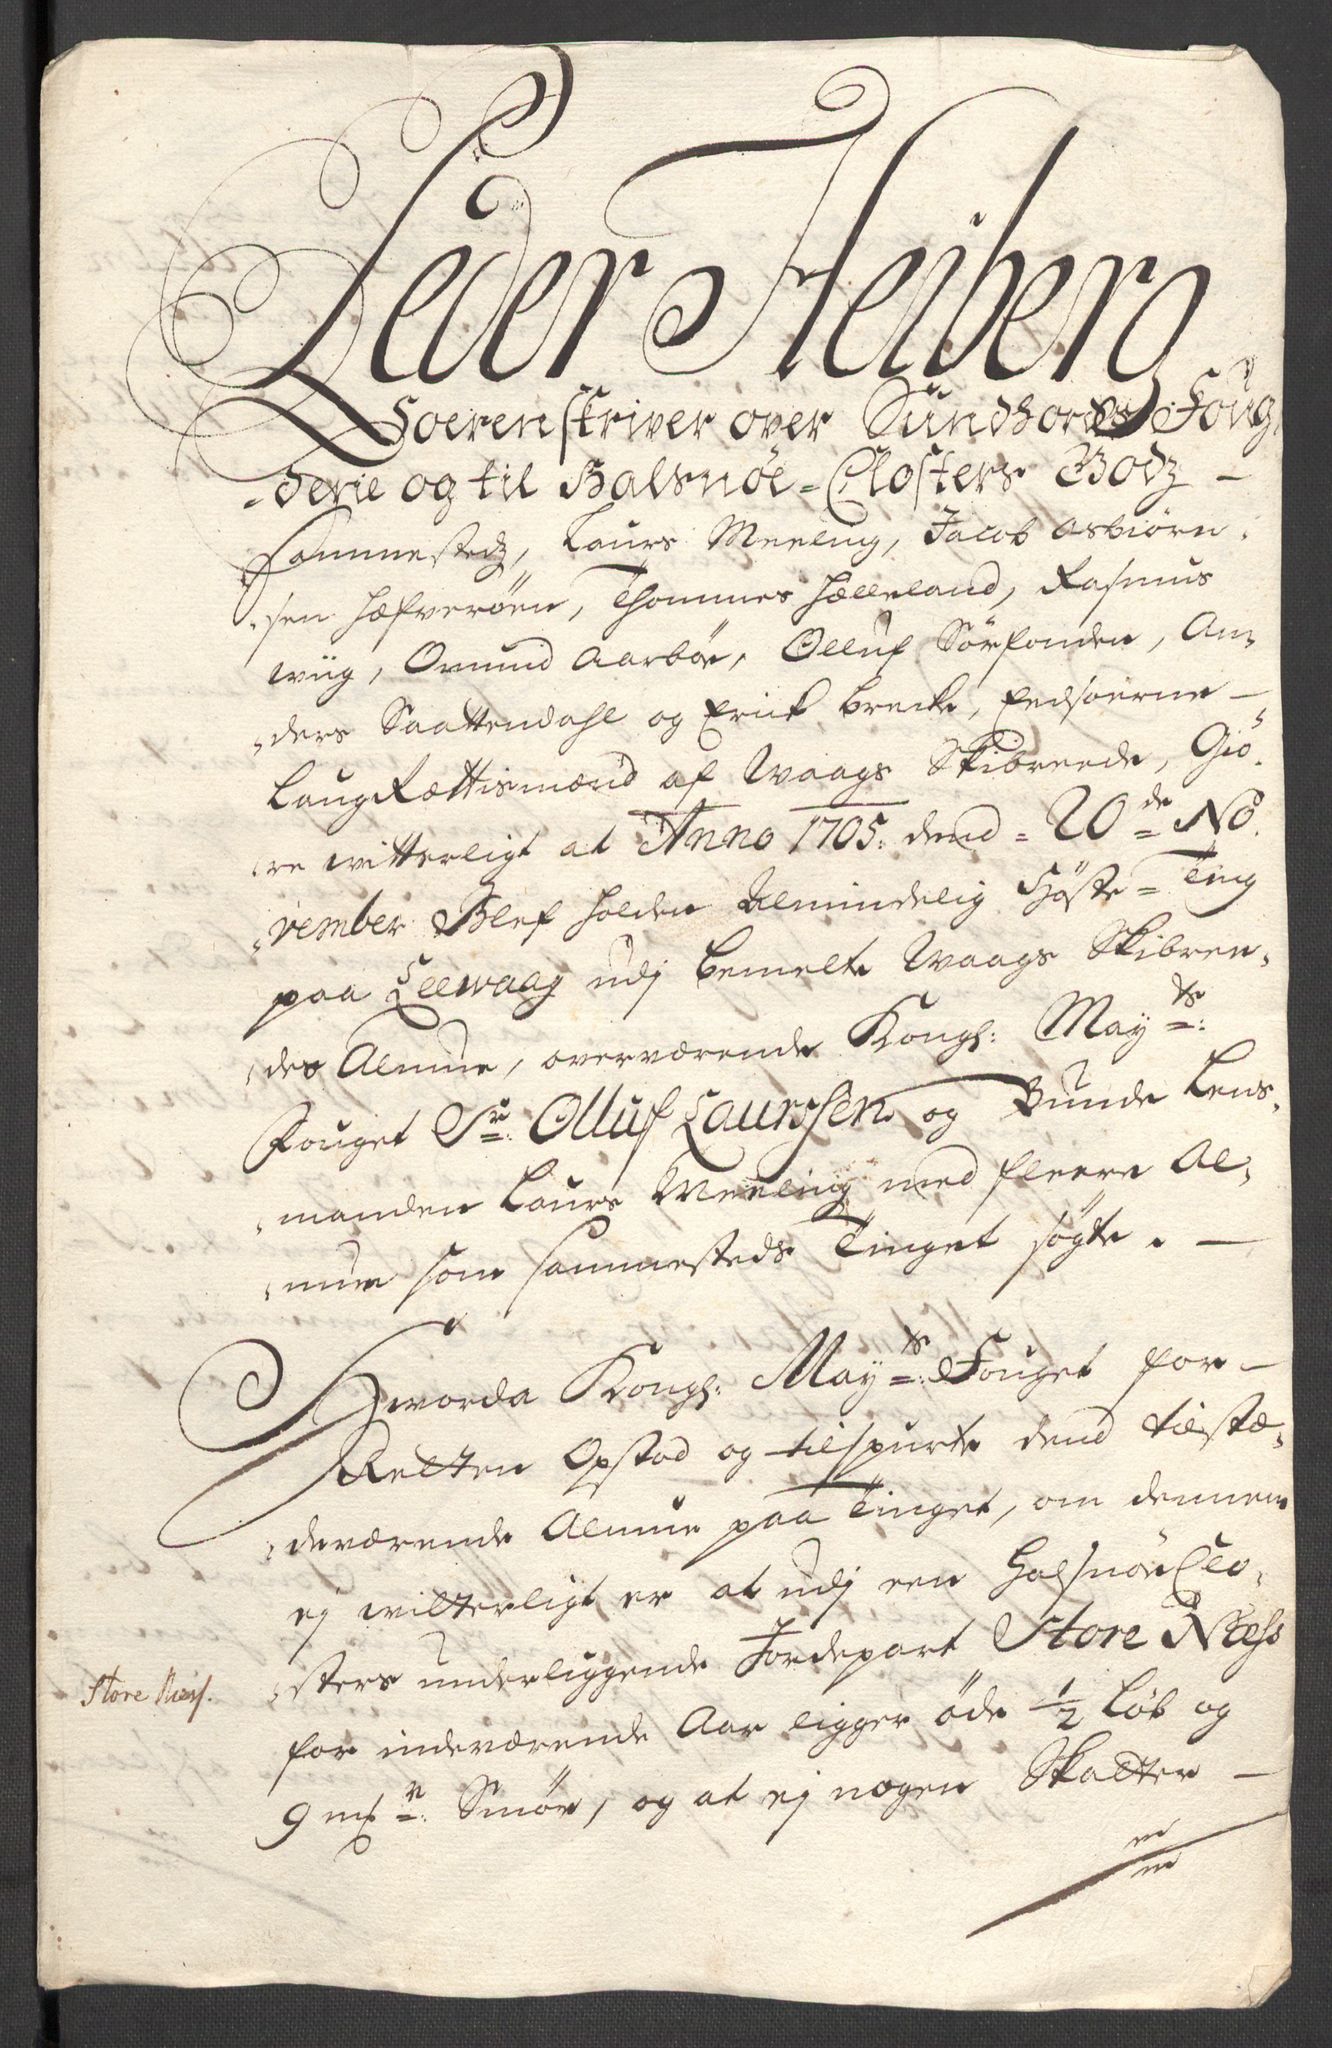 Peder Heiberg
Soerenskriver over Sundhords Foug-
-derie og til Halsnöe-Closters Godz -
Sammestedz, Laurs Meeling, Jacob Osbiörn-
-sen Hæfveröen, Thommes Hælleland, Rasmus
wiig, Omund Aarböe, Olluf Sörfonden, An-
-ders Saattendahl og Erick Brecke, Eedsoerne -
LaugRættismænd af Waags Skibreede, Giö-
-re witterligt at Anno 1705: dend = 20de No-
-vember Blef holden Almindelig Höste = Ting
paa Leewaag udj bemelte Waags Skibree-
-des Almue, overværende Kongl: Mayts:
Fouget Sr: Olluf Laurssen og Bunde Lens-
-manden Laurs Meeling med fleere Al-
-mue som sammesteds Tinget søgte. -
Hvorda Kongl: Mayts: Fouget for -
Retten Opstod og tilspurte dend tilstæ-
-deværende Almue paa Tinget, om dennem
ej witterligt er at udj een Halsnöe Clo-
-sters underliggende Jordepart Store Næss
Store Næss.
for indeværende Aar ligger öde 1/2 Löb og
9 mkr: Smör, og at ej nogen Skatter -